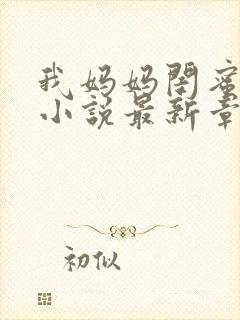 我妈妈闺蜜
小说最新章
初似